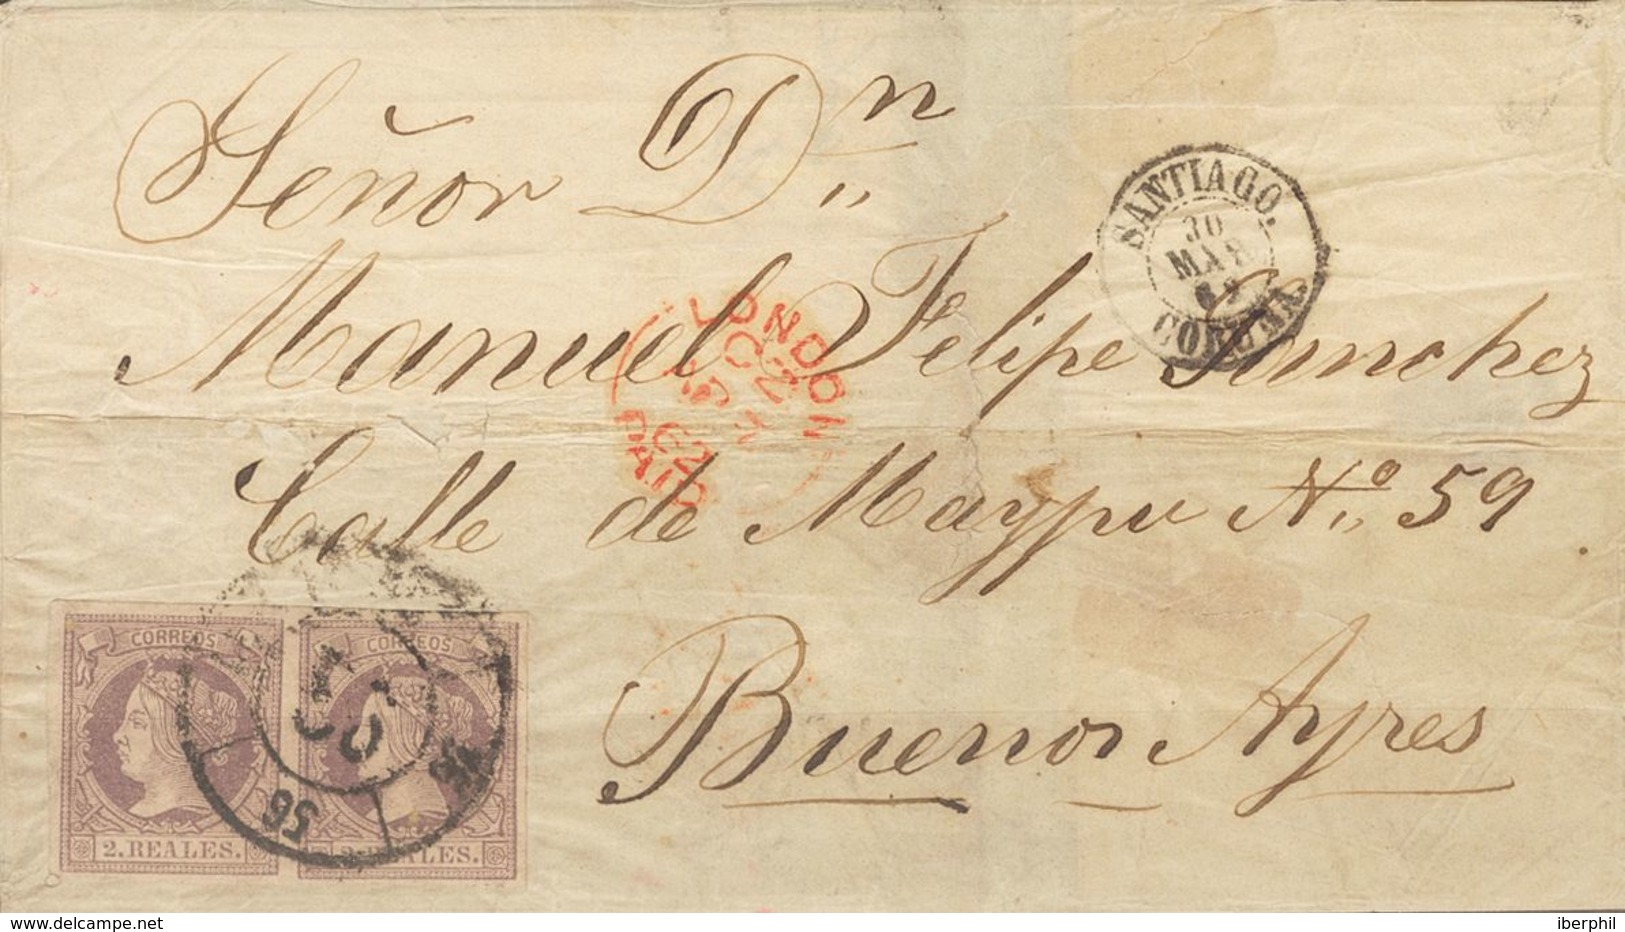 Señor Dn
Manuel Felipe Sanchez
Calle de Maypu No. 59
Buenos Ayres
SANTIAGO.
30
MAR
CORUÑA.
LONDON
62
PAID
CORREOS
2. REALES.
CORREOS
2. REALES.
56
www.delcampe.net
iberphil